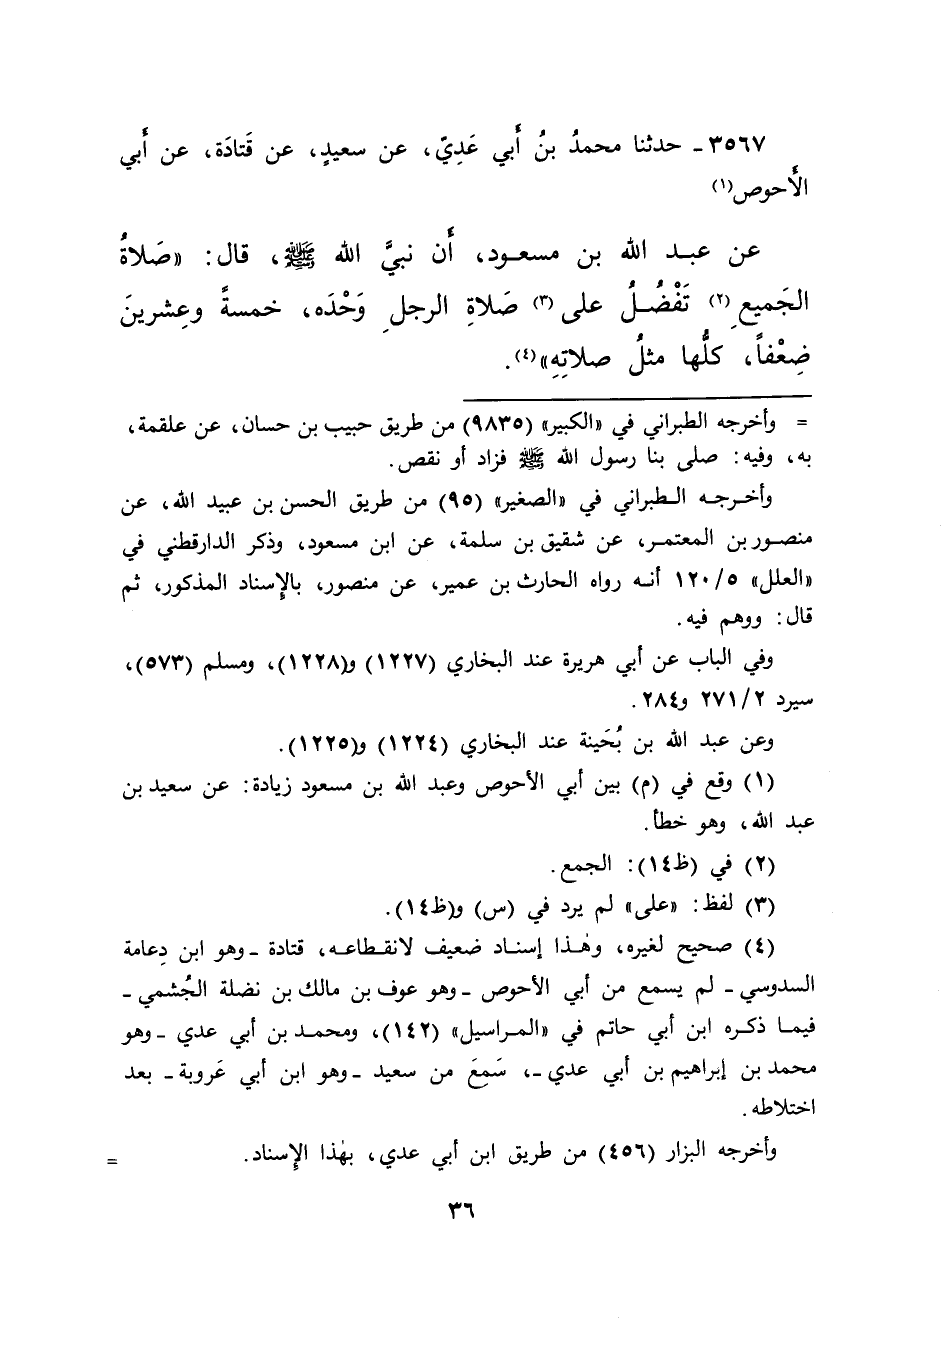 ٣٥٦٧ـ حدثنا محمدُ بنُ أَبي عَدِيّ، عن سعيدٍ، عن قَتادَة، عن أَبي
الأَحوص(١)
عن عبد الله بن مسعود، أَن نبيَّ الله ﷺ، قال: «صَلاةُ
الجَميعِ(٢) تَفْضُلُ على(٣) صَلاةِ الرجلِ وَحْدَه، خمسةً وعِشرينَ
ضِعْفاً، كلُّها مثلُ صلاتِهِ»(٤).
= وأخرجه الطبراني في «الكبير» (٩٨٣٥) من طريق حبيب بن حسان، عن علقمة،
به، وفيه: صلى بنا رسول الله ﷺ فزاد أو نقص.
وأخرجه الطبراني في «الصغير» (٩٥) من طريق الحسن بن عبيد الله، عن
منصور بن المعتمر، عن شقيق بن سلمة، عن ابن مسعود، وذكر الدارقطني في
«العلل» ١٢٠/٥ أنه رواه الحارث بن عمير، عن منصور، بالإسناد المذكور، ثم
قال: ووهم فيه.
وفي الباب عن أبي هريرة عند البخاري (١٢٢٧) و(١٢٢٨)، ومسلم (٥٧٣)،
سيرد ٢٧١/٢ و٢٨٤.
وعن عبد الله بن بُحَينة عند البخاري (١٢٢٤) و(١٢٢٥).
(١) وقع في (م) بين أبي الأحوص وعبد الله بن مسعود زيادة: عن سعيد بن
عبد الله، وهو خطأ.
(٢) في (ظ١٤): الجمع.
(٣) لفظ: «على» لم يرد في (س) و(ظ١٤).
(٤) صحيح لغيره، وهٰذا إسناد ضعيف لانقطاعه، قتادة ـ وهو ابن دِعامة
السدوسي ـ لم يسمع من أبي الأحوص ـ وهو عوف بن مالك بن نضلة الجُشمي ـ
فيما ذكره ابن أبي حاتم في «المراسيل» (١٤٢)، ومحمد بن أبي عدي ـ وهو
محمد بن إبراهيم بن أبي عدي ـ، سَمِعَ من سعيد ـ وهو ابن أبي عَروبة ـ بعد
اختلاطه.
وأخرجه البزار (٤٥٦) من طريق ابن أبي عدي، بهٰذا الإسناد. =
٣٦